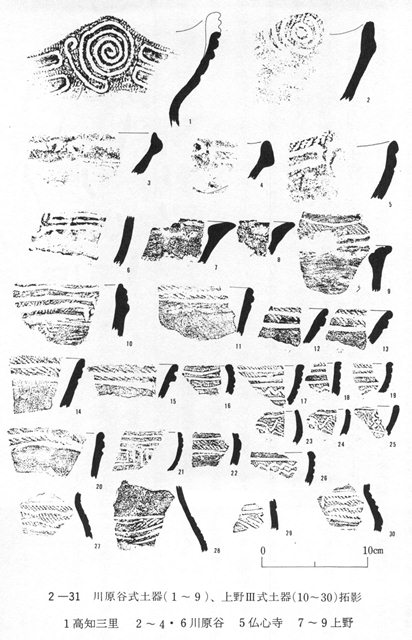 1
2
3
4
5
6
7
8
9
10
11
12
13
14
15
16
17
18
19
20
21
22
23
24
25
26
27
28
29
30
0 10cm
2—31 川原谷式土器(1~9)、上野Ⅲ式土器(10~30)拓影
1高知三里 2~4・6川原谷 5仏心寺 7~9上野